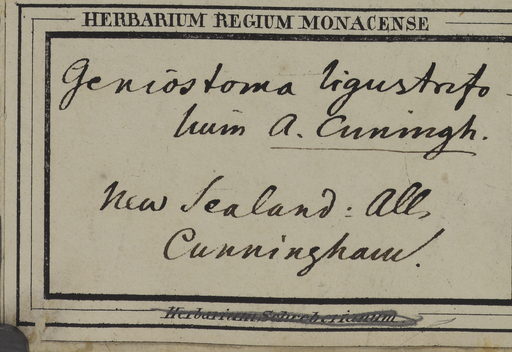 HERBARIUM REGIUM MONACENSE
Geniostoma ligustrifo-
lium A. Cuningh.
New Sealand: All.
Cunningham.
Herbarium Schreberianum